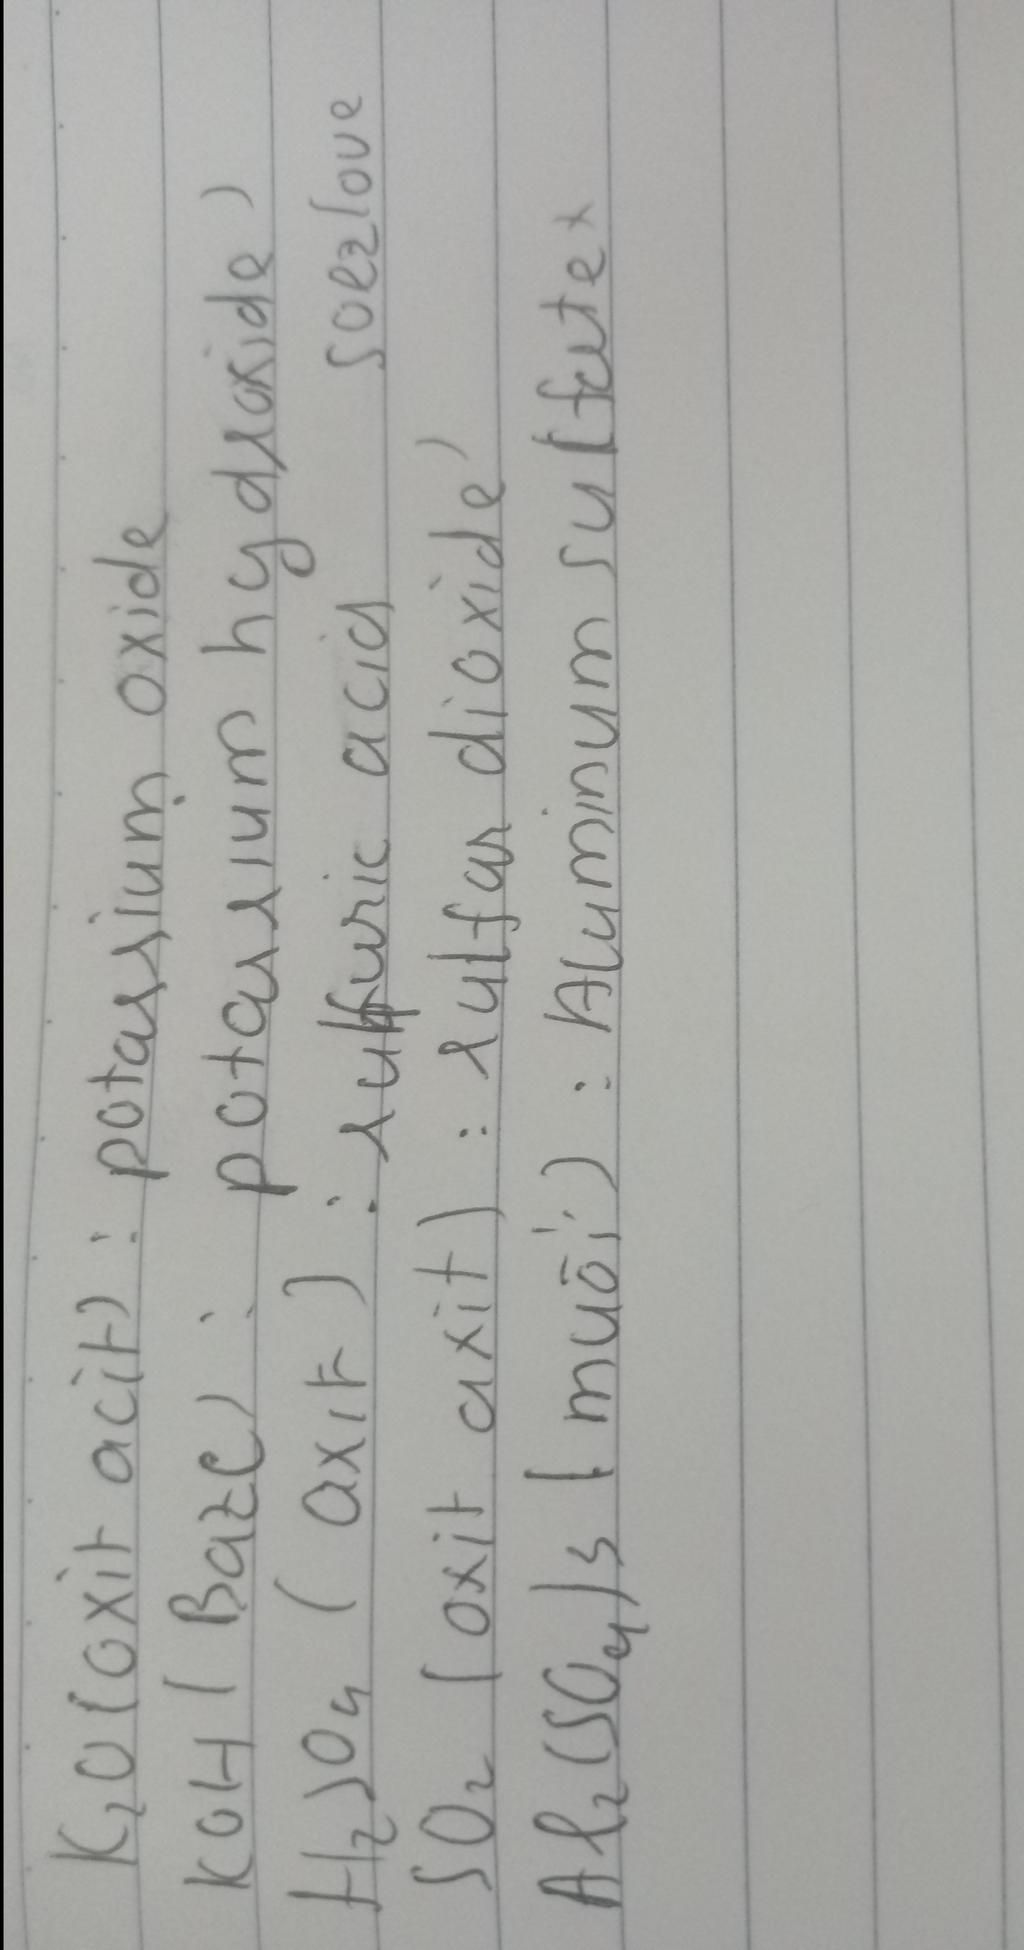 K₂O (oxit acit) : potassium oxide
KOH ( Bazơ) : potassium hydroxide )
H₂SO₄ ( axit ) : sulfuric acid soezlove
SO₂ (oxit axit) : sulfur dioxide )
Al₂(SO₄)₃ ( muối ) : Aluminum sulfate